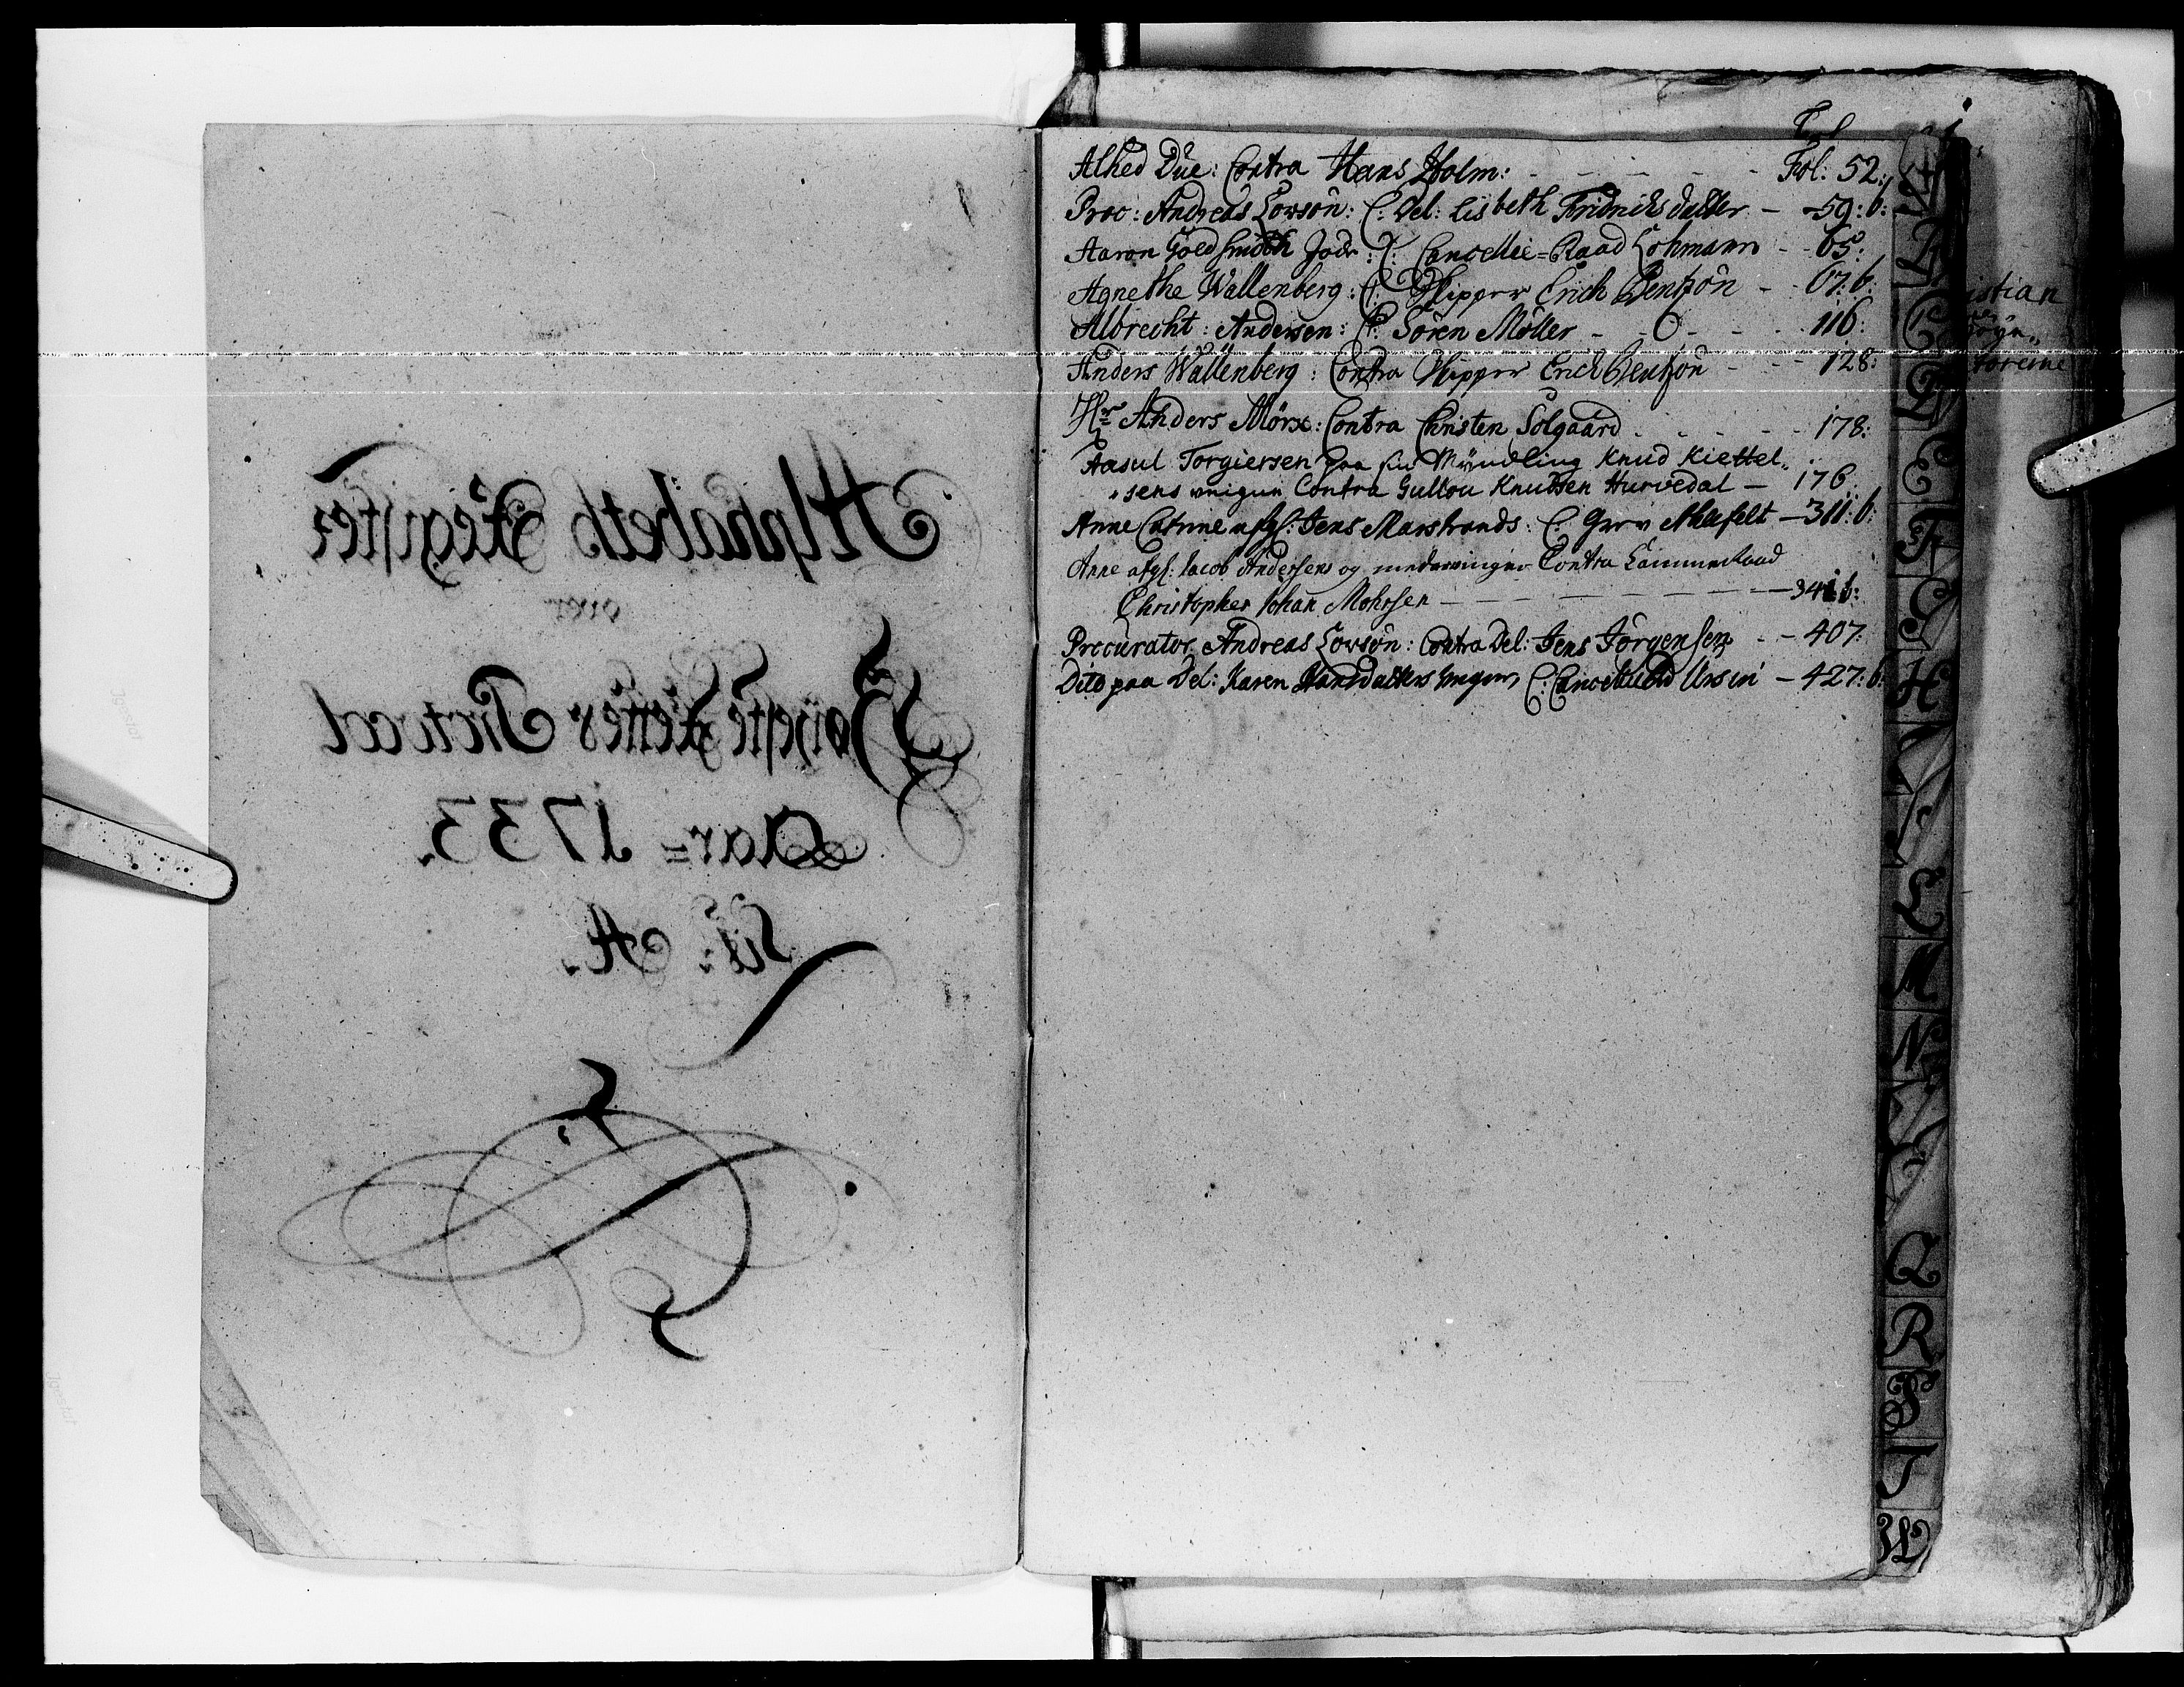 Alphabets Register
over
Høyeste Rettes Protocol
Aar = 1733.
Lit: A.
Fol
Alhed Due: Contra Hans Holm: - - - - - Fol: 52:
Proc: Andreas Lowsøn: C: Del: Lisbeth Fridrichsdatter - - 59: b:
Aaron Goldsmidth Jøde: C: Cancellie=Raad Lohmann - - 65:
Agnethe Wallenberg: C: Skipper Erich Bentzøn - - 67: b:
Albrecht: Andersen: C: Søren Møller - - - - 116:
Anders Wallenberg: Contra Skipper Erich Bentzøn - - 128:
Hr Anders Mørx: Contra Christen Solgaard - - - - 178:
Aasul Torgiersen paa sin Myndling Knud Kiettel„
„sens vegne Contra Gullou Knudsen Hurvedal - 176
Anne Catrine afgl: Jens Marstrands: C: Grev Ahlefelt - 311: b:
Anne afgl: Jacob Andersens og medarvinger Contra Cammerraad
Christopher Johan Mohrsen - - - - - - - 341 b:
Procurator Andreas Lowsøn: Contra Del: Jens Jørgensen - - 407:
Dito paa Del: Karen Hansdatters vegne C: Cancelliraad Ursin - 427: b:
A
B
C
D
E
F
G
H
I
L
M
N
P
Q
R
S
T
istian